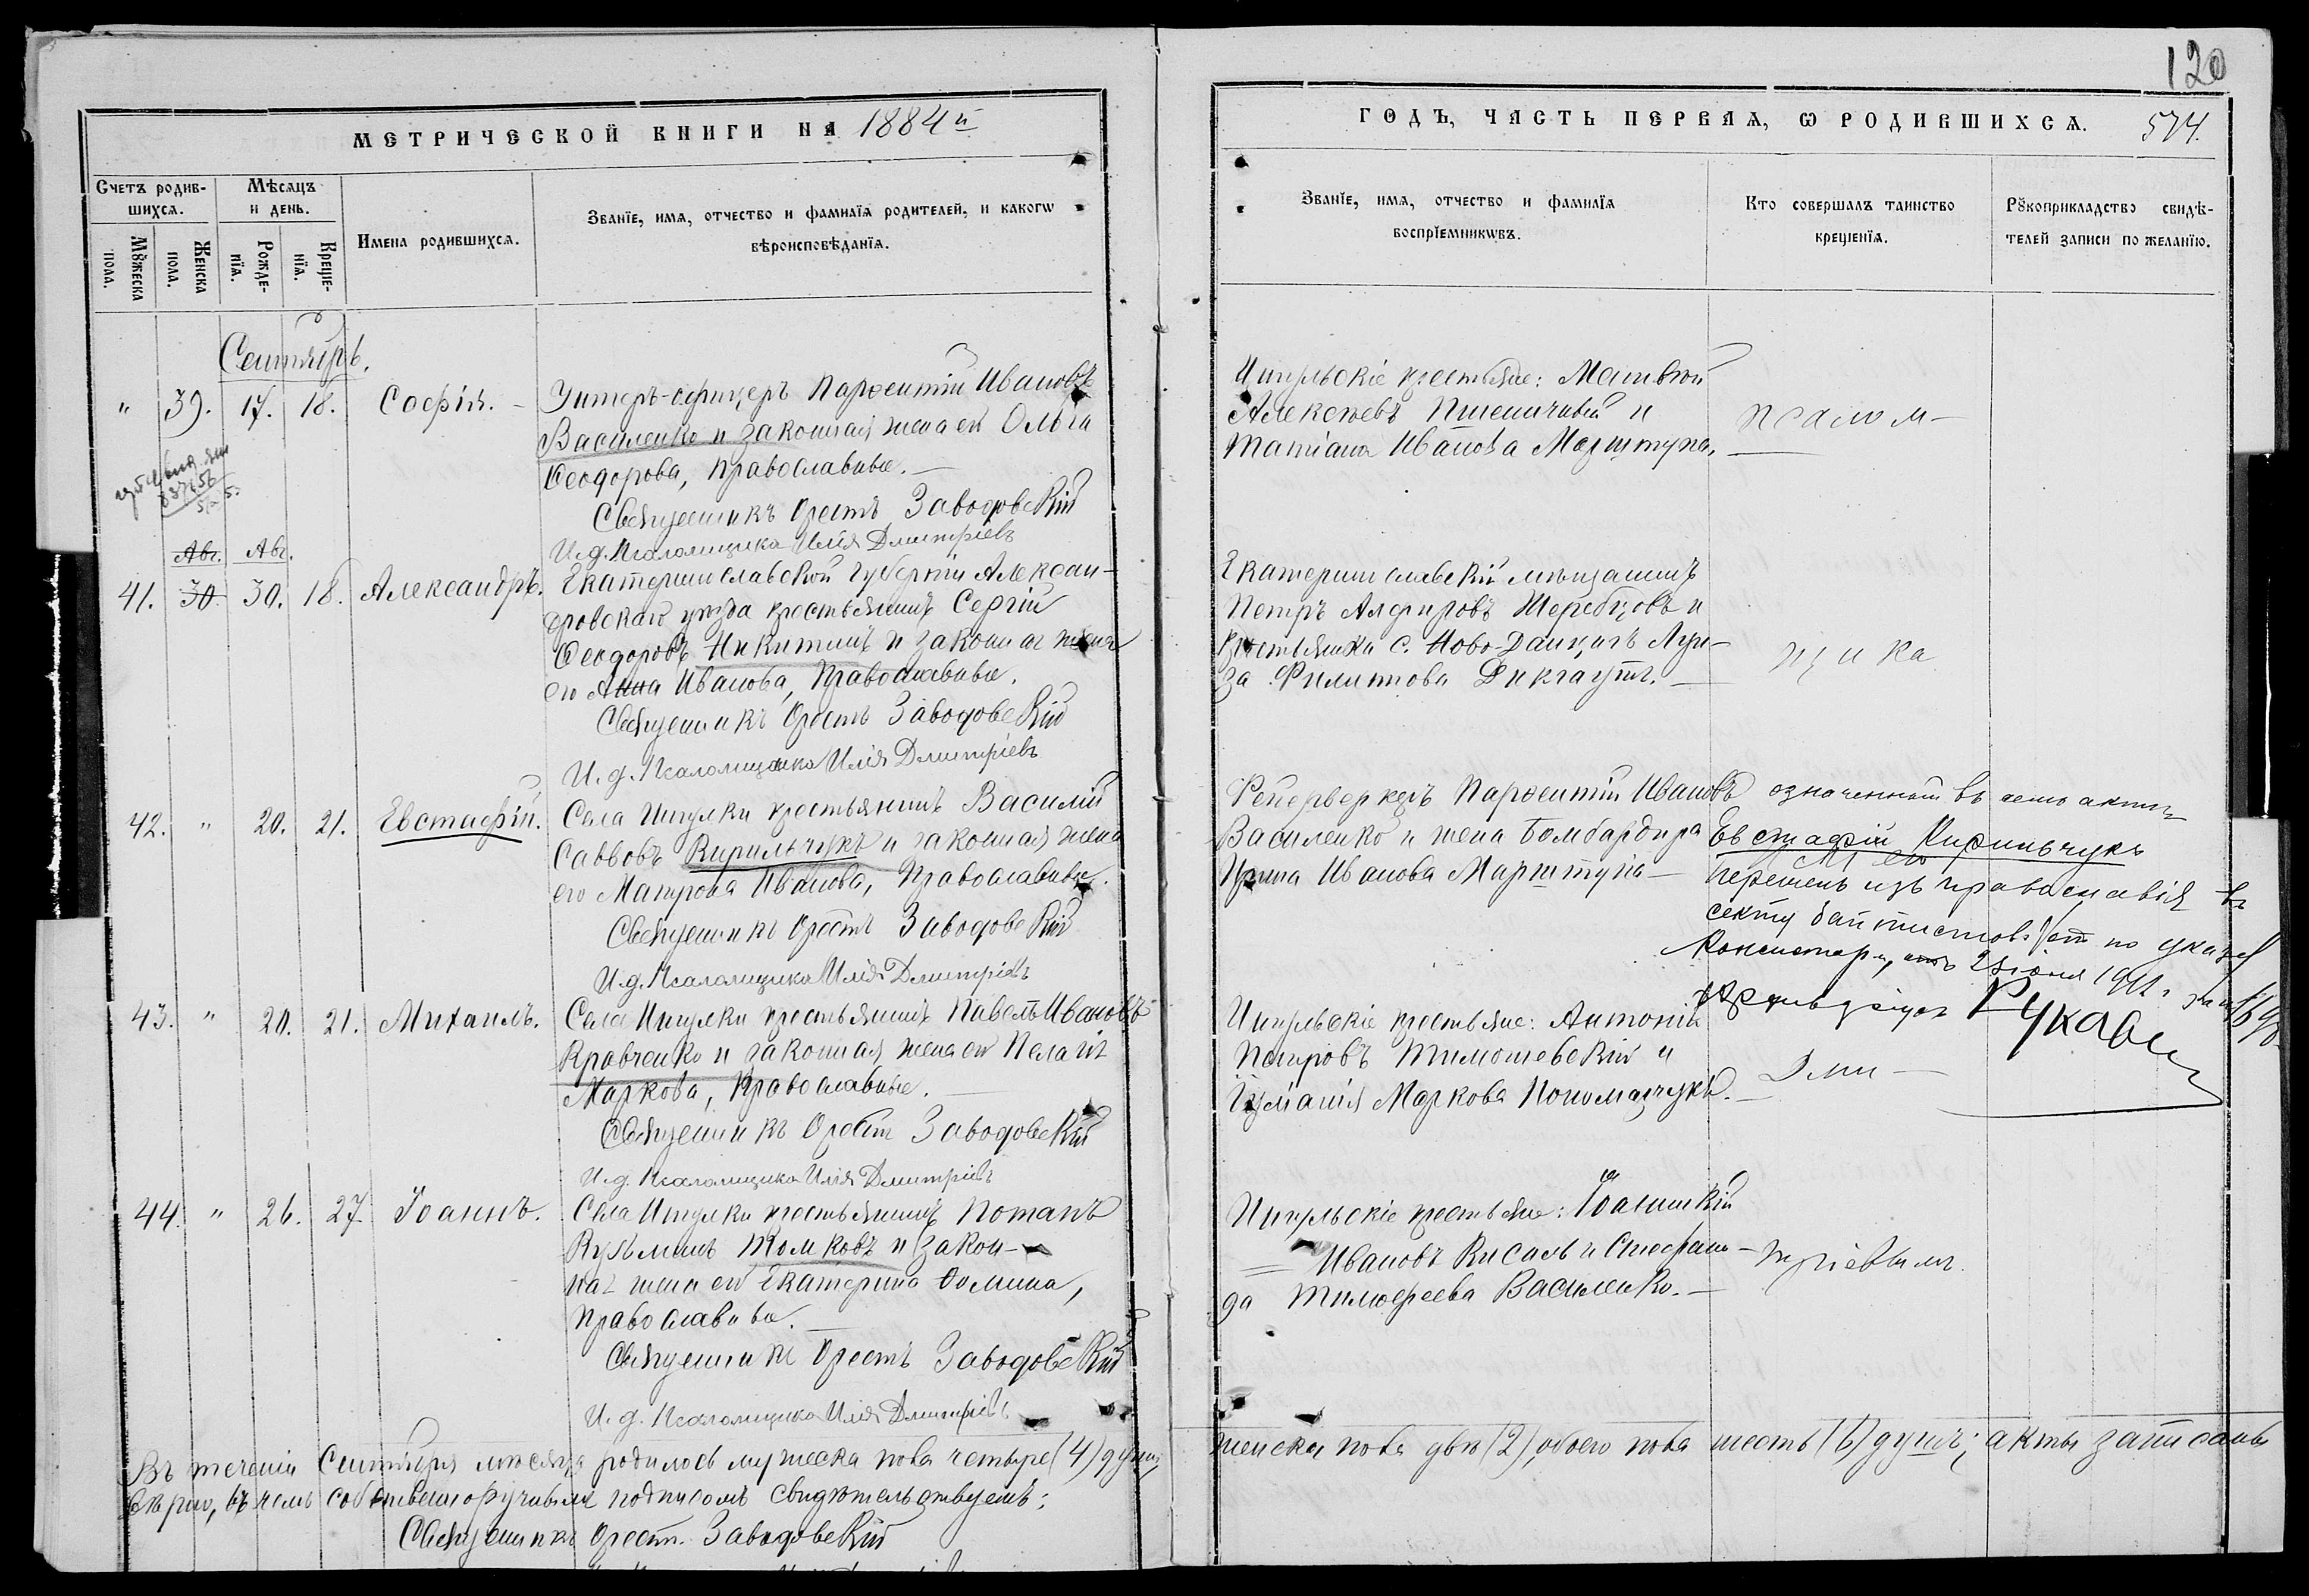 120
МЕТРИЧЕСКОЙ КНИГИ НА 1884й
ГОДЪ, ЧАСТЬ ПЕРВАЯ, Ѡ РОДИВШИХСЯ. 574.
Счетъ родив-
шихся.
Мѣсяцъ
и день.
Мꙋжеска
пола.
Женска
пола.
Рожде-
нїя.
Креще-
нїя.
Имена родившихся.
Званїе, имя, отчество и фамилїя родителей, и какогѡ
вѣроисповѣданїя.
Званїе, имя, отчество и фамилїя
воспрїемникѡвъ.
Кто совершалъ таинство
крещенїя.
Рꙋкоприкладство свидѣ-
телей записи по желанїю.
Сентябрь.
" 39. 17. 18. Софія. –
Унтеръ-офицеръ Парѳентій Ивановъ
Василенко и законная жена его Ольга
Ѳеодорова, православные. –
Священникъ Орестъ Заводовскій
И.д. Псаломщика Илія Дмитріевъ
Ингульскіе крестьяне: Матвей
Алексеевъ Пшеничный и
Татіана Иванова Марштупа.
псалом–
Авг. Авг.
41. 30. 30. 18. Александръ.
Екатеринославской губерніи Алексан-
дровскаго уезда крестьянинъ Сергій
Ѳеодоровъ Никитинъ и законная жена
его Анна Иванова, Православные.
Священникъ Орестъ Заводовскій
И.д. Псаломщика Илія Дмитріевъ
Екатеринославскій мещанинъ
Петръ Жеребцовъ и
крестьянка с. Ново-Данцигъ Луи-
за Филиппова
щика
42. " 20. 21. Евстафій.
Села Ингулки крестьянинъ Василій
Саввовъ Кирильчукъ и законная жена
его Матрона Иванова, Православные.
Священникъ Орестъ Заводовскій
И.д. Псаломщика Илія Дмитріевъ
Фейерверкеръ Парѳентій Ивановъ
Василенко и жена бомбардира
Ирина Иванова Марштупа –
означенный въ семъ акте
Евстафій Кирильчукъ
перешелъ изъ православія въ
секту баптистовъ по указу
Консисторіи, отъ 1911 г.
43. " 20. 21. Михаилъ.
Села Ингулки крестьянинъ Павелъ Ивановъ
Кравченко и законная жена его Пелагія
Маркова, Православные. –
Священникъ Орестъ Заводовскій
И.д. Псаломщика Илія Дмитріевъ
Ингульскіе крестьяне: Антоній
Петровъ Тимошевскій и
Маркова Пономарчукъ. –
Дми –
44. " 26. 27. Іоаннъ.
Села Ингулки крестьянинъ Потапъ
Кузьминъ Томковъ и закон–
ная жена его Екатерина Ѳомина,
православные. –
Священникъ Орестъ Заводовскій
И.д. Псаломщика Илія Дмитріевъ
Ингульскіе крестьяне: Іоанникій
Ивановъ Кисель и Стефани–
да Тимофеева Василенко. –
тріевымъ.
Въ теченіи Сентября месяца родилось мужеска пола четыре (4) души,
женска пола две (2), обоего пола шесть (6) душъ; акты записаны
верно, въ чемъ собственноручнымъ подписомъ свидетельствуемъ:
Священникъ Орестъ Заводовскій